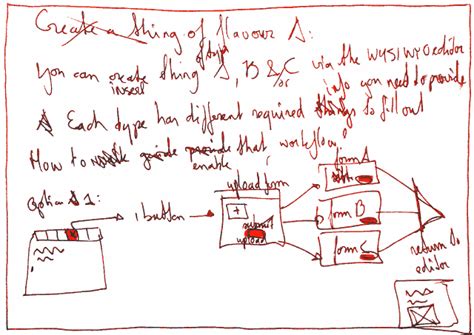 Create a thing of flavour A:
You can create insert thing of type A, B &/or C via the WYSIWYG editor
Each type has different required things info you need to provide to fill out
How to guide provide enable that workflow?
Option 1:
1 button
upload form
+
submit
upload
form A
form B
form C
return to
editor